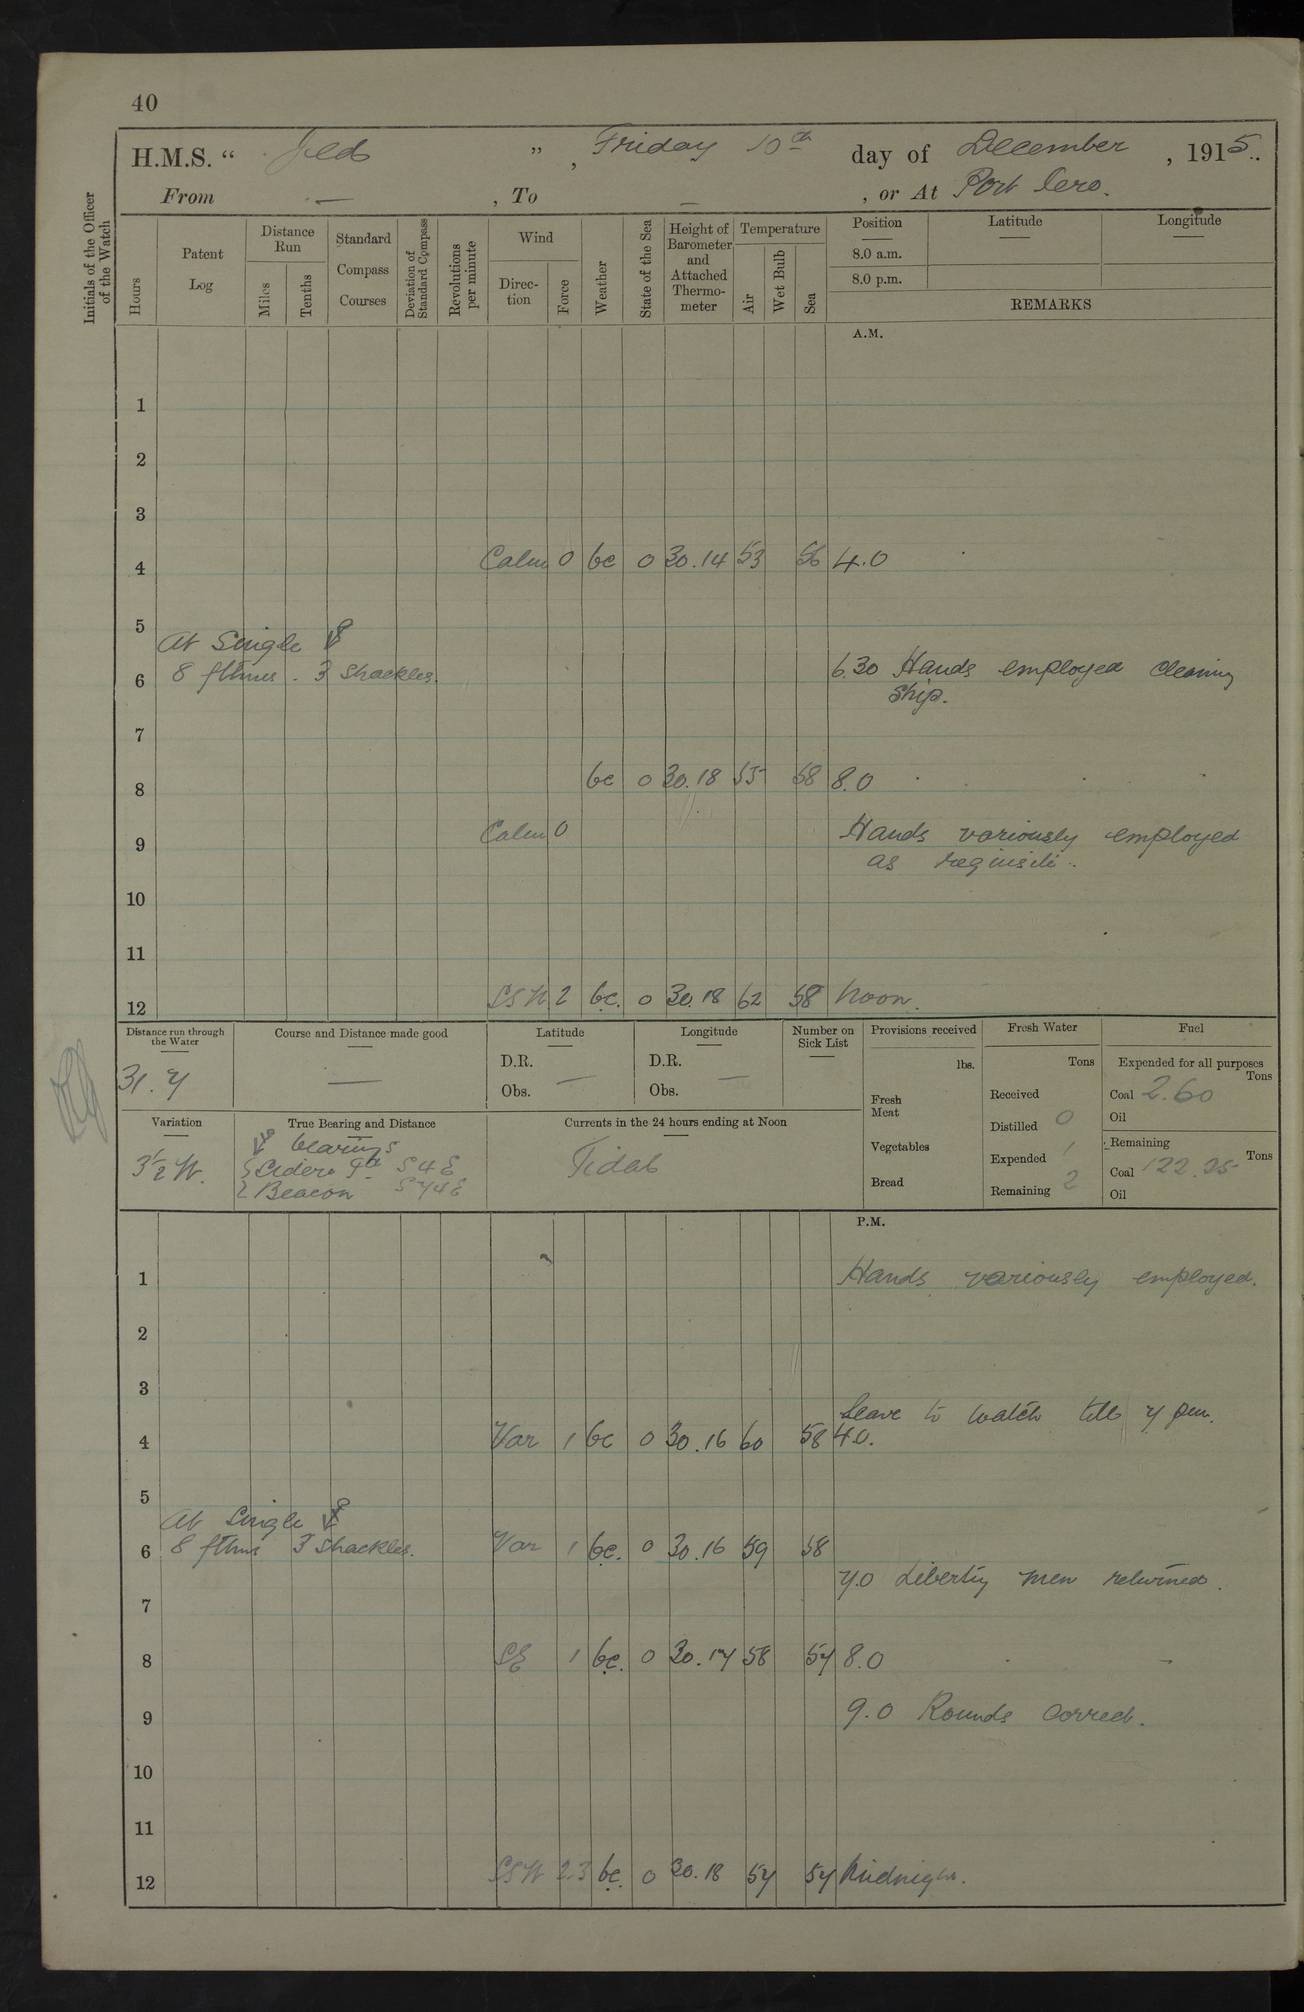 40
H.M.S. " Jed ", Friday 10th day of December, 1915.
From — , To — , or At Port Iero.
Initials of the Officer of the Watch
Hours
Patent Log
Distance Run
Miles
Tenths
Standard Compass Courses
Deviation of Standard Compass
Revolutions per minute
Wind
Direction
Force
Weather
State of the Sea
Height of Barometer and Attached Thermometer
Temperature
Air
Wet Bulb
Sea
Position
8.0 a.m.
8.0 p.m.
Latitude
Longitude
REMARKS
A.M.
1
2
3
4 Calm 0 bc 0 30.14 53 56 4.0
5
At Single
6 8 fthms. 3 shackles. 6.30 Hands employed cleaning
ship.
7
8 bc 0 30.18 55 58 8.0
9 Calm 0 Hands variously employed
as requisite.
10
11
12 SSW 2 bc. 0 30.18 62 58 Noon.
Distance run through the Water
31.7
Course and Distance made good
—
Latitude
D.R.
Obs. —
Longitude
D.R.
Obs. —
Number on Sick List
Provisions received
lbs.
Fresh Meat
Vegetables
Bread
Fresh Water
Tons
Received
Distilled 0
Expended 1
Remaining 2
Fuel
Expended for all purposes
Tons
Coal 2.60
Oil
Remaining
Tons
Coal 122.25
Oil
Variation
3½ W.
True Bearing and Distance
bearings
Sidero Id S 4 E
Beacon S 74 E
Currents in the 24 hours ending at Noon
Tidal
P.M.
1 Hands variously employed.
2
3
Leave to watch till 7 pm.
4 Var 1 bc 0 30.16 60 58 4.0.
5
At Single
6 8 fthms 3 shackles. Var 1 bc. 0 30.16 59 58
7.0 Liberty men returned.
7
8 SE 1 bc. 0 30.17 58 57 8.0
9 9.0 Rounds correct.
10
11
12 SSW 2.3 bc. 0 30.18 57 57 Midnight.